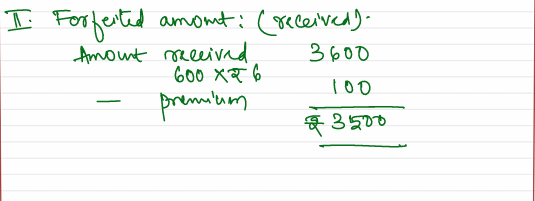 II. Forfeited amount: (received).
Amount received 3600
600 X ₹ 6
— premium 100
₹ 3500